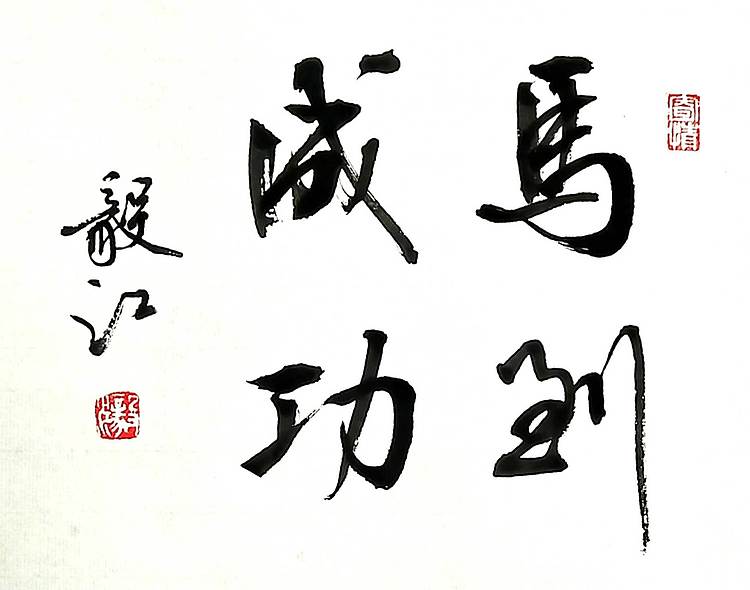 馬到
成功
毅江